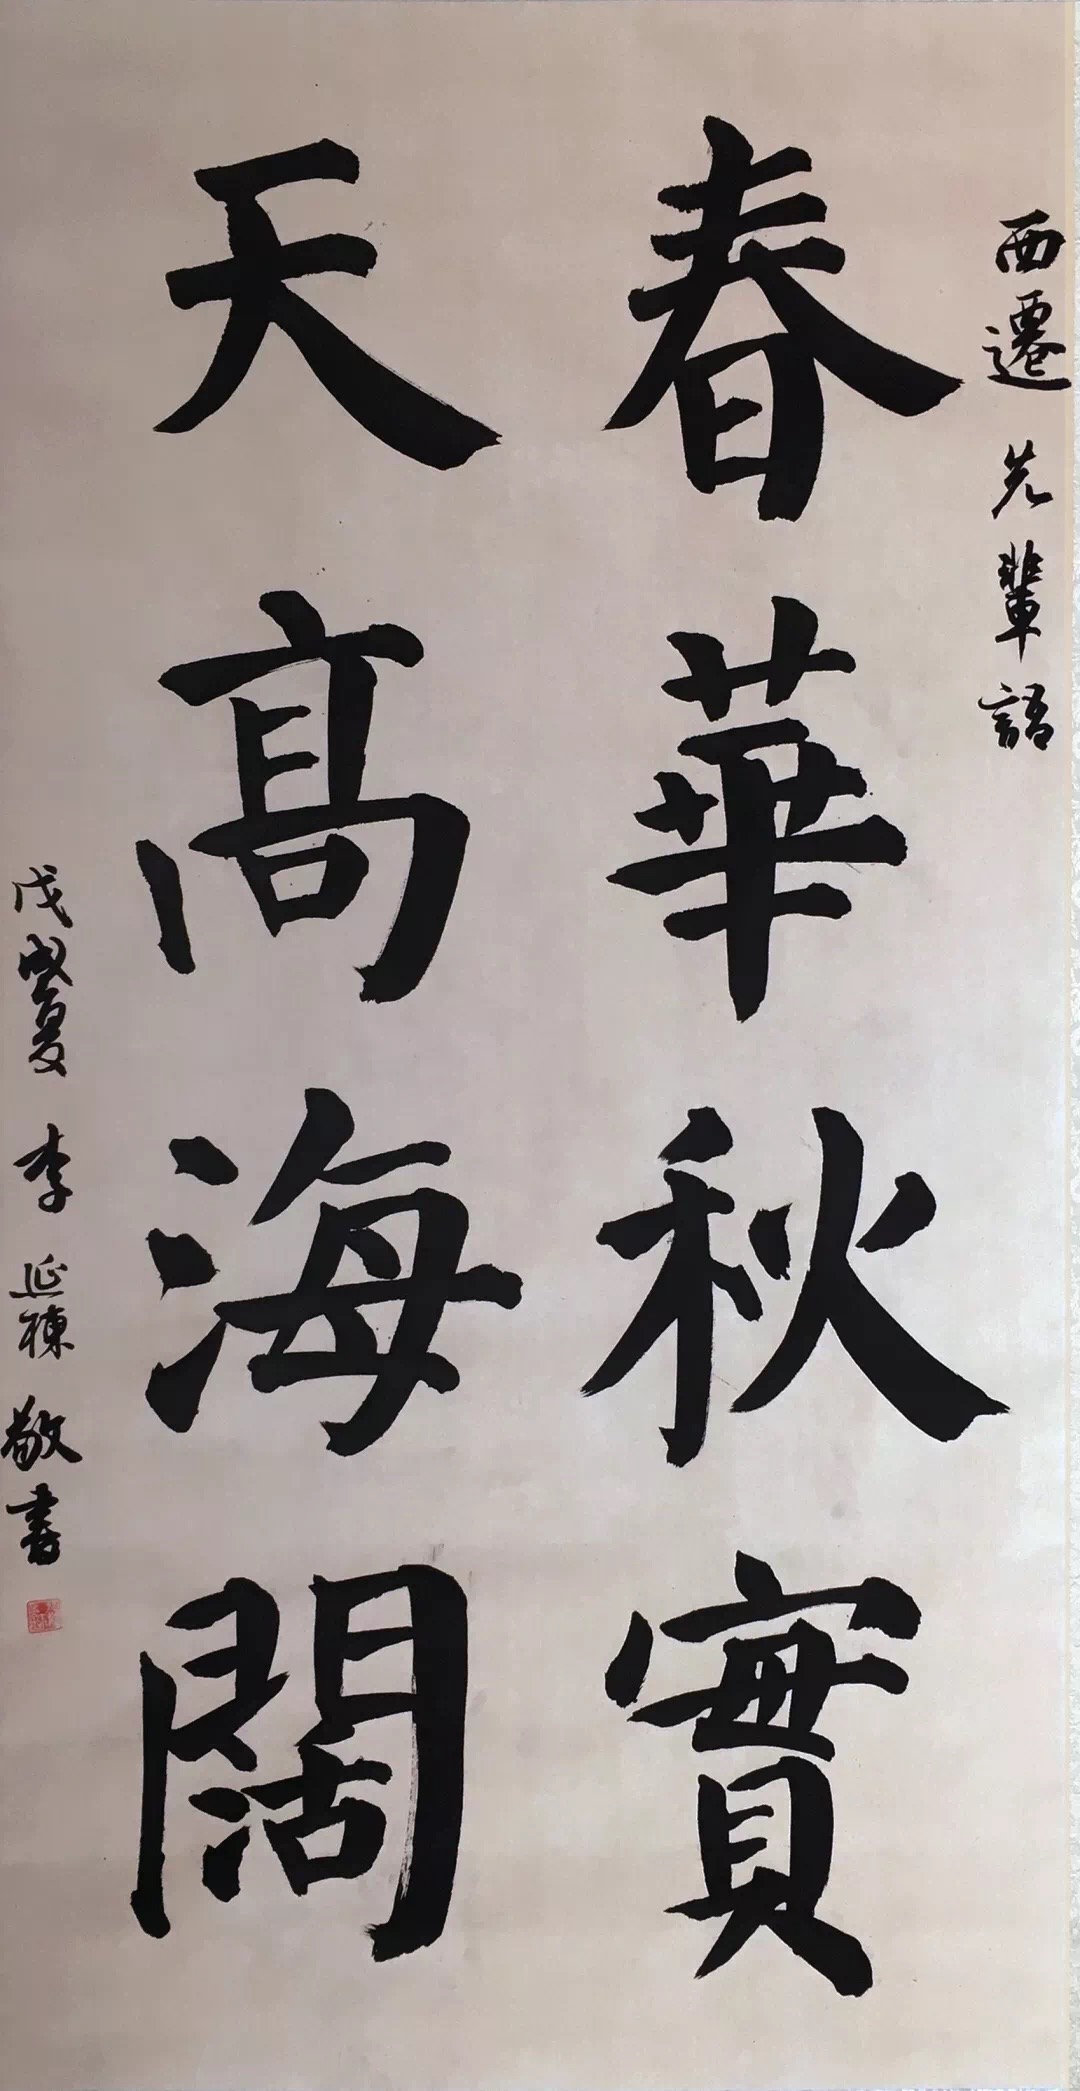 西遷先輩語
春華秋實
天高海闊
戊戌夏李延棟敬書